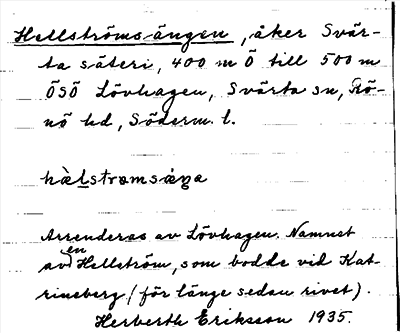 Hellströmsängen, åker Svär-
ta säteri, 400 m Ö till 500 m
ÖSÖ Lövhagen, Svärta sn, Rö-
nö hd, Söderm. l.
hælstrømsæŋa
Arrenderas av Lövhagen. Namnet
av en Hellström, som bodde vid Kat-
rineberg (för länge sedan rivet).
Herberth Eriksson 1935.